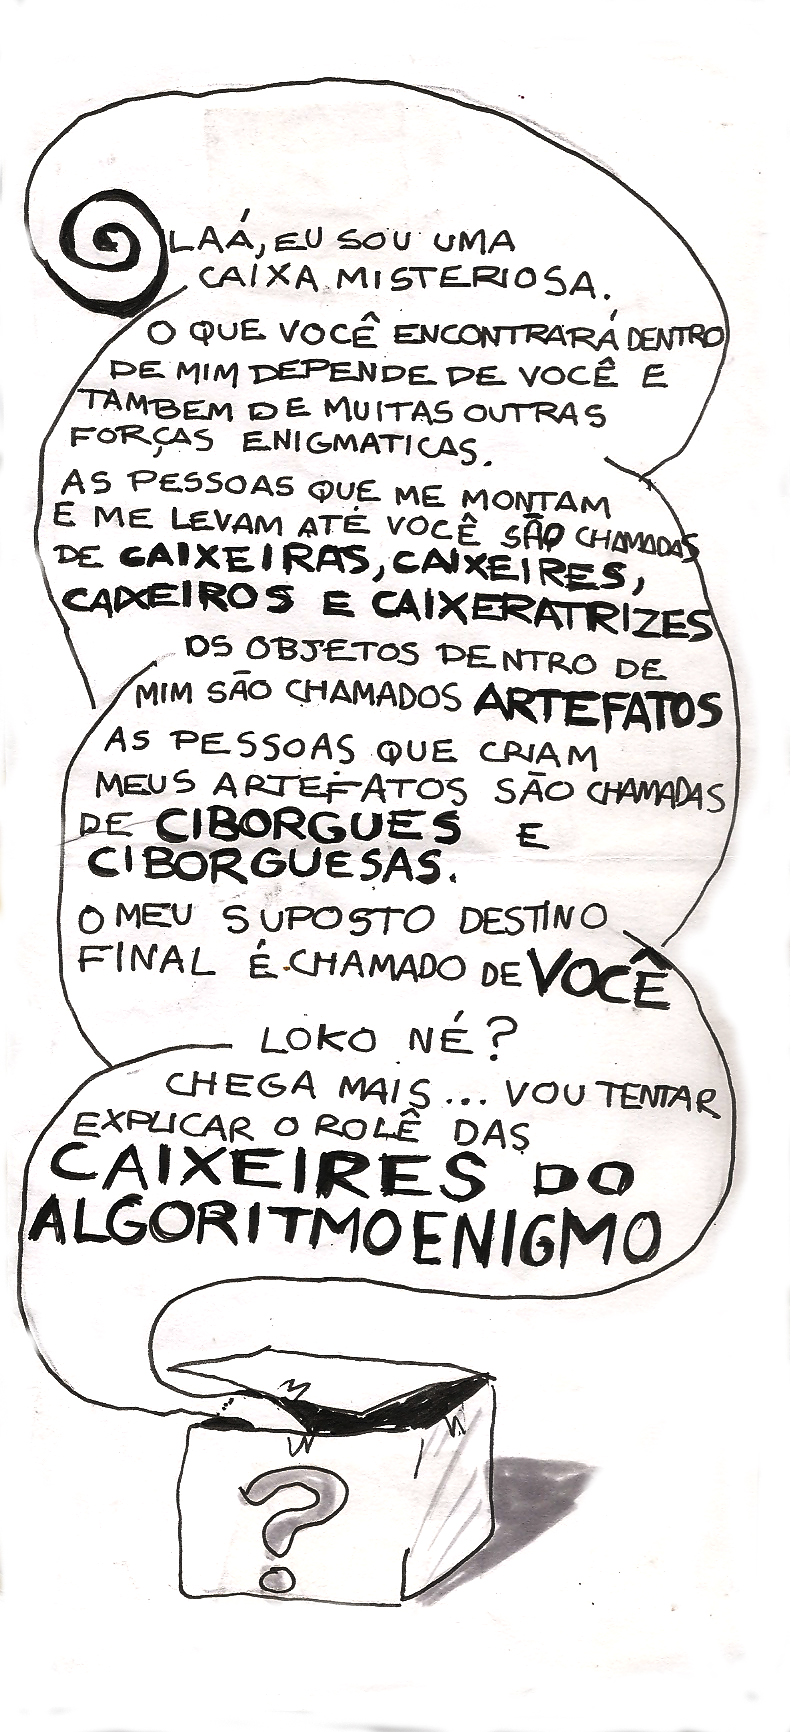 OLAÁ, EU SOU UMA
CAIXA MISTERIOSA.
O QUE VOCÊ ENCONTRARÁ DENTRO
DE MIM DEPENDE DE VOCÊ E
TAMBEM DE MUITAS OUTRAS
FORÇAS ENIGMATICAS.
AS PESSOAS QUE ME MONTAM
E ME LEVAM ATÉ VOCÊ SÃO CHAMADAS
DE CAIXEIRAS, CAIXEIRES,
CAIXEIROS E CAIXERATRIZES
OS OBJETOS DENTRO DE
MIM SÃO CHAMADOS ARTEFATOS
AS PESSOAS QUE CRIAM
MEUS ARTEFATOS SÃO CHAMADAS
DE CIBORGUES E
CIBORGUESAS.
O MEU SUPOSTO DESTINO
FINAL É CHAMADO DE VOCÊ
LOKO NÉ?
CHEGA MAIS... VOU TENTAR
EXPLICAR O ROLÊ DAS
CAIXEIRES DO
ALGORITMO ENIGMO
?